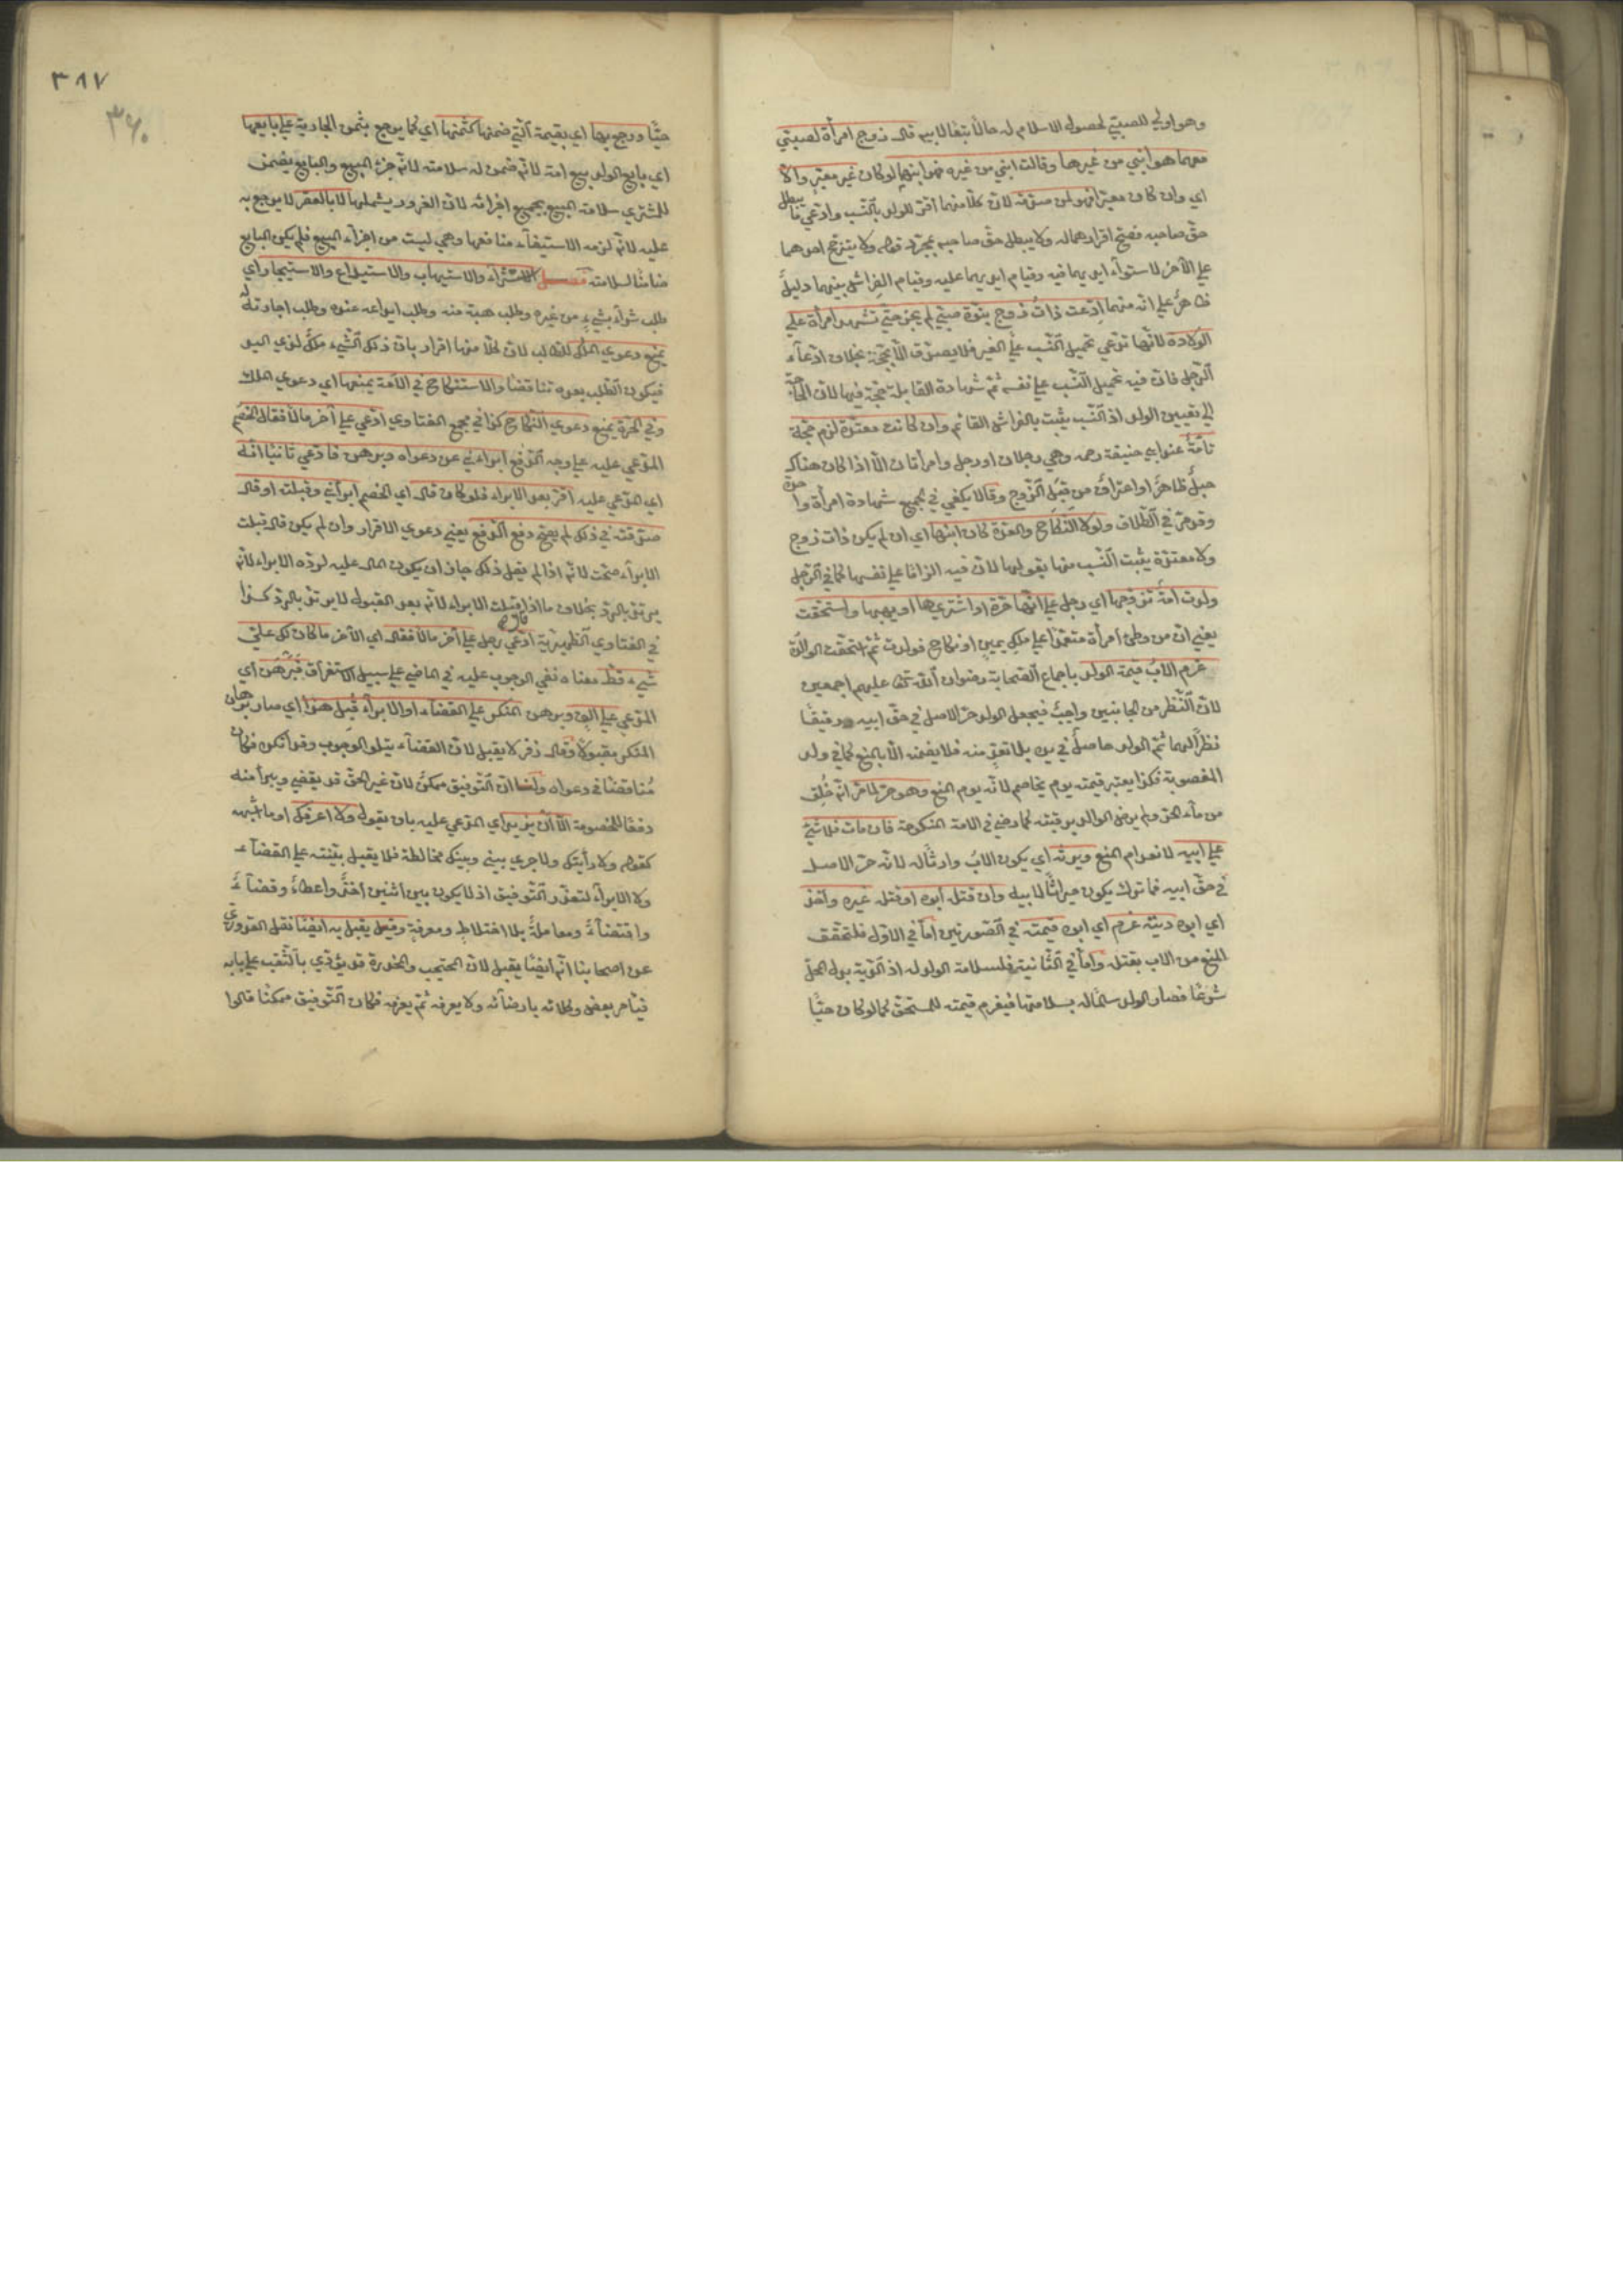 وهو اولي للصبي لحصول الاسلام له حالا تبعا لابيه قال زوج امرأة لصبي
معهما هو ابني من غيرها وقالت ابني من غيره فهو ابنهما لو كان غير معبر والا
اي وان كان معبرا فهو لمن صدقه لان كلا منهما اقر للولد بالنسب وادعي ما يبطل
حق صاحبه فصح اقرارهما له ولا يبطل حق صاحبه بمجرد قوله ولا يترجح احدهما
علي الآخر لاستوآء ايديهما فيه وقيام ايديهما عليه وقيام الفراش بينهما دليل
ظاهر علي انه منهما ادعت ذات زوج بنوة صبي لم يجز حتي تشهد امرأة علي
الولادة لانها تدعي تحميل النسب علي الغير فلا يصدق الا بحجة بخلاف ادعآء
الرجل فان فيه تحميل النسب علي نفسه ثم شهادة القابلة حجة فيها لان الحاجة
الي تعيين الولد اذ النسب يثبت بالفراش القائم وان كانت معتدة لزم حجة
تامة عند ابي حنيفة رحمه وهي رجلان او رجل وامرأتان الا اذا كان هناك
حبل ظاهر او اعتراف من قبل الزوج وقالا يكفي في الجميع شهادة امرأة واحدة
وقد مر في الطلاق ولولا النكاح والعدة كان ابنها اي ان لم يكن ذات زوج
ولا معتدة يثبت النسب منها بقولها لان فيه الزاما علي نفسها كما في الرجل
ولدت امة تزوجها اي رجل علي انها حرة او اشتريها او يهبها واستحقت
يعني ان من وطئ امرأة معتمدا علي ملك يمين او نكاح فولدت ثم استحقت الوالدة
غرم الاب قيمة الولد باجماع الصحابة رضوان الله تع عليهم اجمعين
لان النظر من الجانبين واجب فيجعل الولد حر الاصل في حق ابيه ورقيقا
نظرا لهما ثم الولد حاصل في يده بلا تعد منه فلا يضمنه الا بالمنع كما في ولد
المغصوبة فكذا يعتبر قيمته يوم يخاصم لانه يوم المنع وهو حر لما مر انه خلق
من مآء الحر ولم يرض الوالد برقيته كما رضي في الامة المنكوحة فان مات فلا شئ
علي ابيه لانعدام المنع ويرثه اي يكون الاب وارثا له لانه حر الاصل
في حق ابيه فما ترك يكون ميراثا لابيه وان قتل ابوه او قتله غيره واخذ
اي ابوه ديته غرم اي ابوه قيمته في الصورتين اما في الاول فلتحقق
المنع من الاب بقتله واما في الثانية فلسلامة الولد له اذ الدية بدل المحل
شرعا فصار الولد سالما له بسلامتها فيغرم قيمته للمستحق كما لو كان حيا
٣٨٧
٣٦٠
حيا ورجع بها اي بقيمة التي ضمنها كثمنها اي كما يرجع بثمن الجارية علي بايعها
اي بايع الولد ببيع امه لانه ضمن له سلامته لانه جزء المبيع والبايع يضمن
للمشتري سلامة المبيع بجميع اجزائه لان الغرور يشملها لا بالعقر لا يرجع به
عليه لانه لزمه لاستيفآء منافعها وهي ليست من اجزآء المبيع فلم يكن البايع
ضامنا لسلامته فصل الاستشرآء والاستيهاب والاستيداع والاستيجار اي
طلب شرآء شيء من غيره وطلب هبة منه وطلب ايداعه عنده وطلب اجارته له
يمنع دعوي الملك للطالب لان كلا منها اقرار بان ذلك الشيء ملك لذي اليد
فيكون الطلب بعده تناقضا والاستنكاح في الامة يمنعها اي دعوي الملك
وفي الحرة يمنع دعوي النكاح كذا في مجمع الفتاوي ادعي علي آخر مالا فقال الخصم
المدعي عليه علي وجه الدفع ابرأني عن دعواه وبرهن فادعي ثانيا انه
اي المدعي عليه اقر بعد الابراء فلو كان قال اي الخصم ابرأني وقبلت او قال
صدقته في ذلك لم يصح دفع الدفع يعني دعوي الاقرار وان لم يكن قال قبلت
الابرآء صحت لانه اذا لم يقل ذلك جاز ان يكون المال عليه لرده الابراء لانه
يرتد بالرد بخلاف ما اذا قبلت الابراء لانه بعد القبول لا يرتد بالرد كذا
في الفتاوي الظهيرية ادعي رجل علي آخر مالا فقال اي الآخر ما كان لك علي
شيء قط معناه نفي الوجوب عليه في الماضي علي سبيل الاستغراق فبرهن اي
المدعي علي الف وبرهن المنكر علي القضاء او الابرآء قبل هذا اي صار برهان
المنكر مقبولا وقال زفر لا يقبل لان القضآء يتلو الوجوب وقد انكره فكان
مناقضا في دعواه ولنا ان التوفيق ممكن لان غير الحق قد يقضي ويبرأ منه
دفعا للخصومة الا ان يزيد اي المدعي عليه بان يقول ولا اعرفك او ما اشبهه
كقوله ولا رأيتك ولا جري بيني وبينك مخالطة فلا يقبل بينته علي القضآء
ولا الابرآء لتعذر التوفيق اذ لا يكون بين اثنين اخذ واعطاء وقضآء
واقتضآء ومعاملة بلا اختلاط ومعرفة وقيل يقبل به ايضا نقل القدوري
عن اصحابنا انه ايضا يقبل لان المحتجب والمخدرة قد يؤذي بالشغب علي بابه
فيأمر بعض وكلائه بارضائه ولا يعرفه ثم يعرفه فكان التوفيق ممكنا قالوا